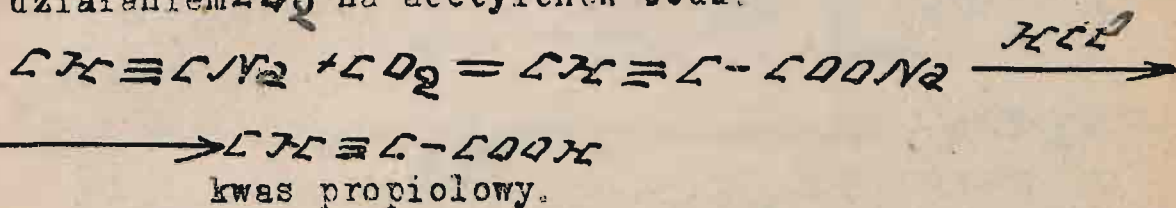 działaniem CO₂ na acetylenek sodu.
CH ≡ CNa + CO₂ = CH ≡ C - COONa HCl →
→ CH ≡ C - COOH
kwas propiolowy.